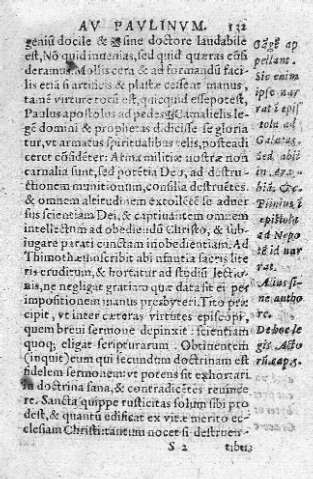 AV PAVLINVM. 132
geniũ docile & sine doctore laudabile
est, Nõ quid inuenias, sed quid quæras cõsi
deramus. Mollis cera & ad formandũ faci
lis etiã si artificis & plastæ cessent manus,
tamẽ virtute totũ est, quicquid esse potest,
Paulus apostolus ad pedes Gamalielis le-
gẽ domini & prophetas didicisse se gloria
tur, vt armatus spiritualibus telis, postea di
ceret cõfidẽter: Arma militiæ nostræ non
carnalia sunt, sed potẽtia Deo, ad destru-
ctionem munitionum, consilia destruẽtes.
& omnem altitudinem extollẽtẽ se aduer
sus scientiam Dei, & captiuãtem omnem
intellectum ad obediendũ Christo, & sub-
iugare parati cunctam inobedientiam. Ad
Thimotheũ scribit ab infantia sacris lite
ris eruditum, & hortatur ad studiũ lectio-
nis, ne negligat gratiam quæ data sit ei per
impositionem manus presbyteri. Tito præ
cipit, vt inter cæteras virtutes episcopi,
quem breui sermone depinxit: scientiam
quoq; eligat scripturarum. Obtinentem
(inquit) eum qui secundum doctrinam est
fidelem sermonem: vt potens sit exhortari
in doctrina sana, & contradicẽtes reuince
re. Sancta quippe rusticitas solum sibi pro
dest, & quantũ edificat ex vitæ merito ec-
clesiam Christi: tantum nocet si destruen-
S 2 tibus
ap
pellant.
Sic enim
ipse nar
rat i epis
tola ad
Galatas,
sed abiit
in Ara-
biã, &c.
Primus i
epistola
ad Nepo
tẽ id nar
rat.
Alius si-
ne autho
re.
De hoc le
gis. Acto
rũ cap. 5.